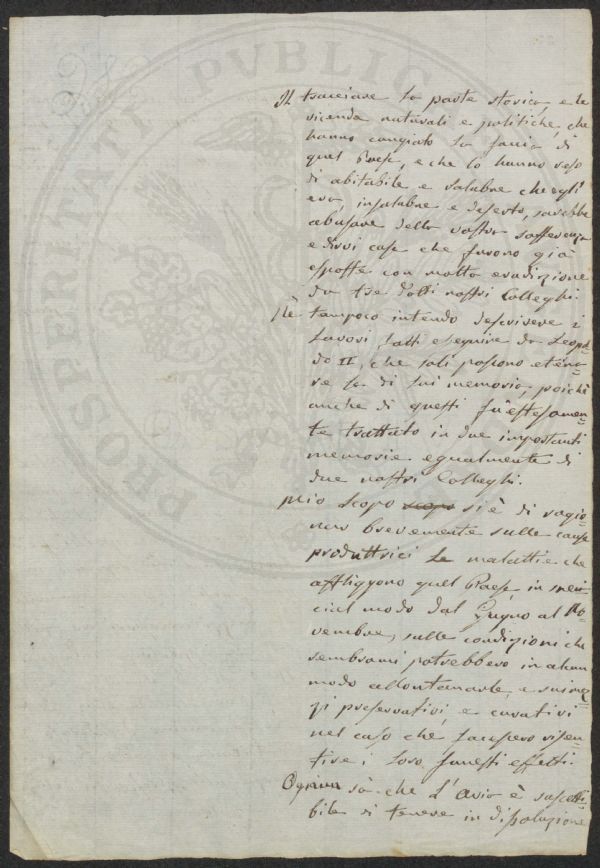 Il tracciare la parte storica e le
vicende naturali e politiche, che
hanno cangiato la faccia di
quel Paese, e che lo hanno reso
di abitabile e salubre che egli
era, insalubre e deserto, sarebbe
abusare della vostra sofferenza
e dirvi cose che furono già
esposte con molta erudizione
da tre dotti nostri Colleghi.
Nè tampoco intendo descrivere i
lavori fatti eseguire da Leopol-
do II, che soli possono eterna-
re la di lui memoria, poichè
anche di questi fù estesamen-
te trattato in due importanti
memorie egualmente di
due nostri Colleghi.
Mio scopo scopo si è di ragio-
nare brevemente sulle cause
produttrici le malattie che
affliggono quel Paese, in spe-
cial modo dal Giugno al No-
vembre, sulle condizioni che
sembrami potrebbero in alcun
modo allontanarle, e sui mez-
zi preservativi, e curativi
nel caso che facessero risen-
tire i loro funesti effetti.
Ognun sà che l'Aria è suscetti-
bile di tenere in dissoluzione
PROSPERITATI PUBLIC